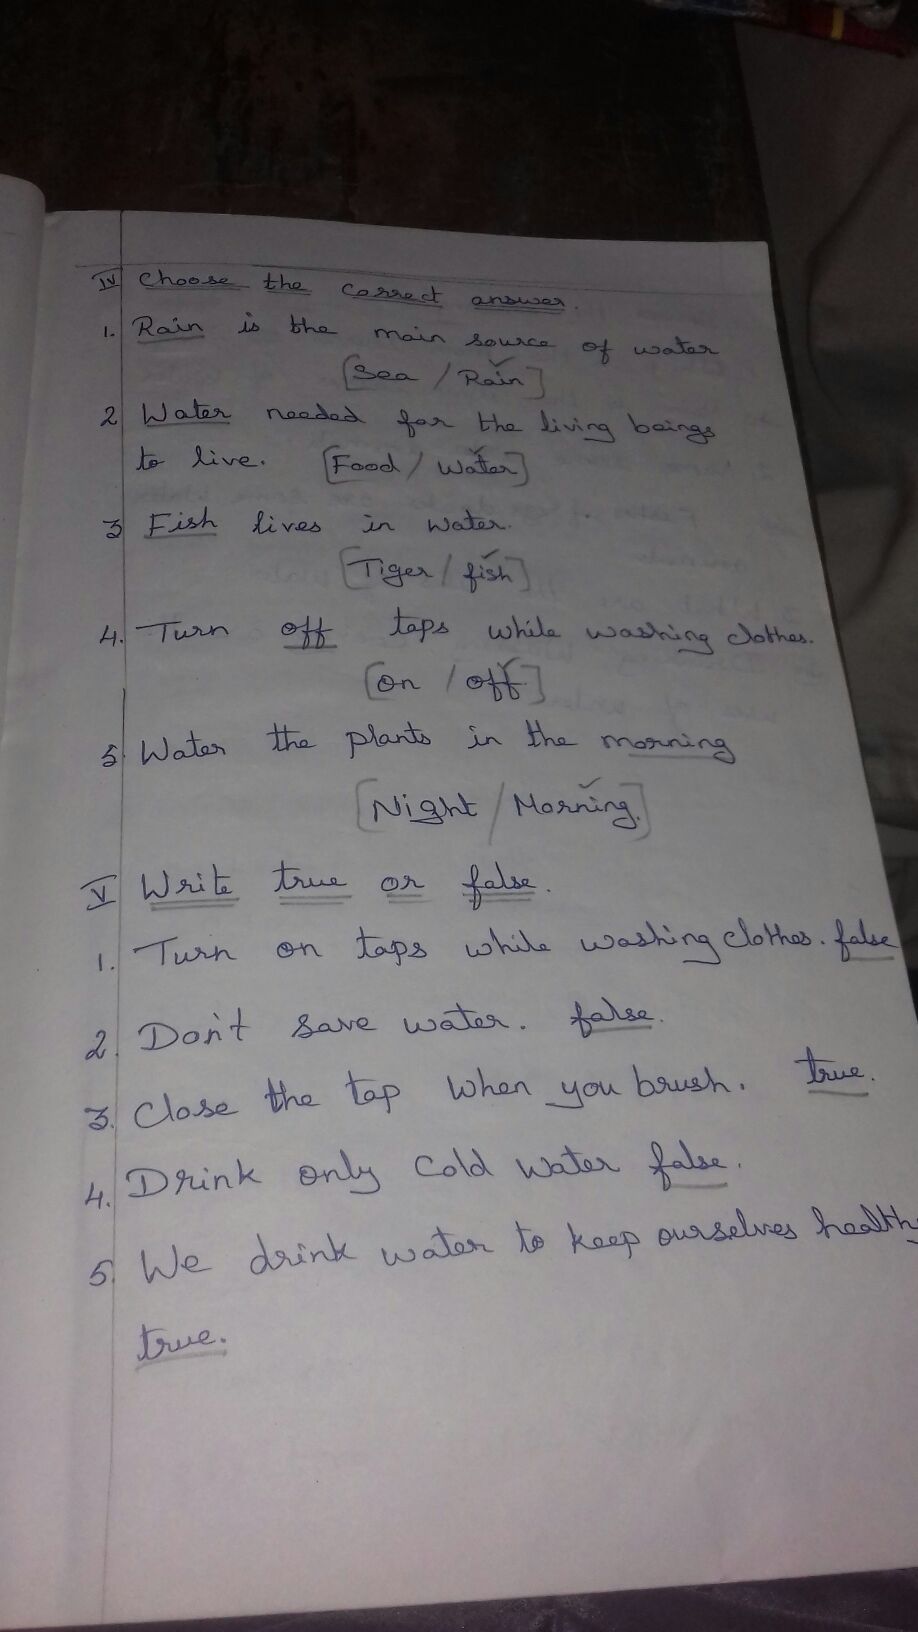 IV Choose the correct answer.
1. Rain is the main source of water
[Sea / Rain]
2 Water needed for the living beings
to live. [Food / Water]
3 Fish lives in water.
[Tiger / fish]
4. Turn off taps while washing clothes.
[On / off]
5. Water the plants in the morning
[Night / Morning.]
V Write true or false.
1. Turn on taps while washing clothes. false
2. Don't save water. false.
3. Close the tap when you brush. true.
4. Drink only cold water false.
5. We drink water to keep ourselves healthy
true.